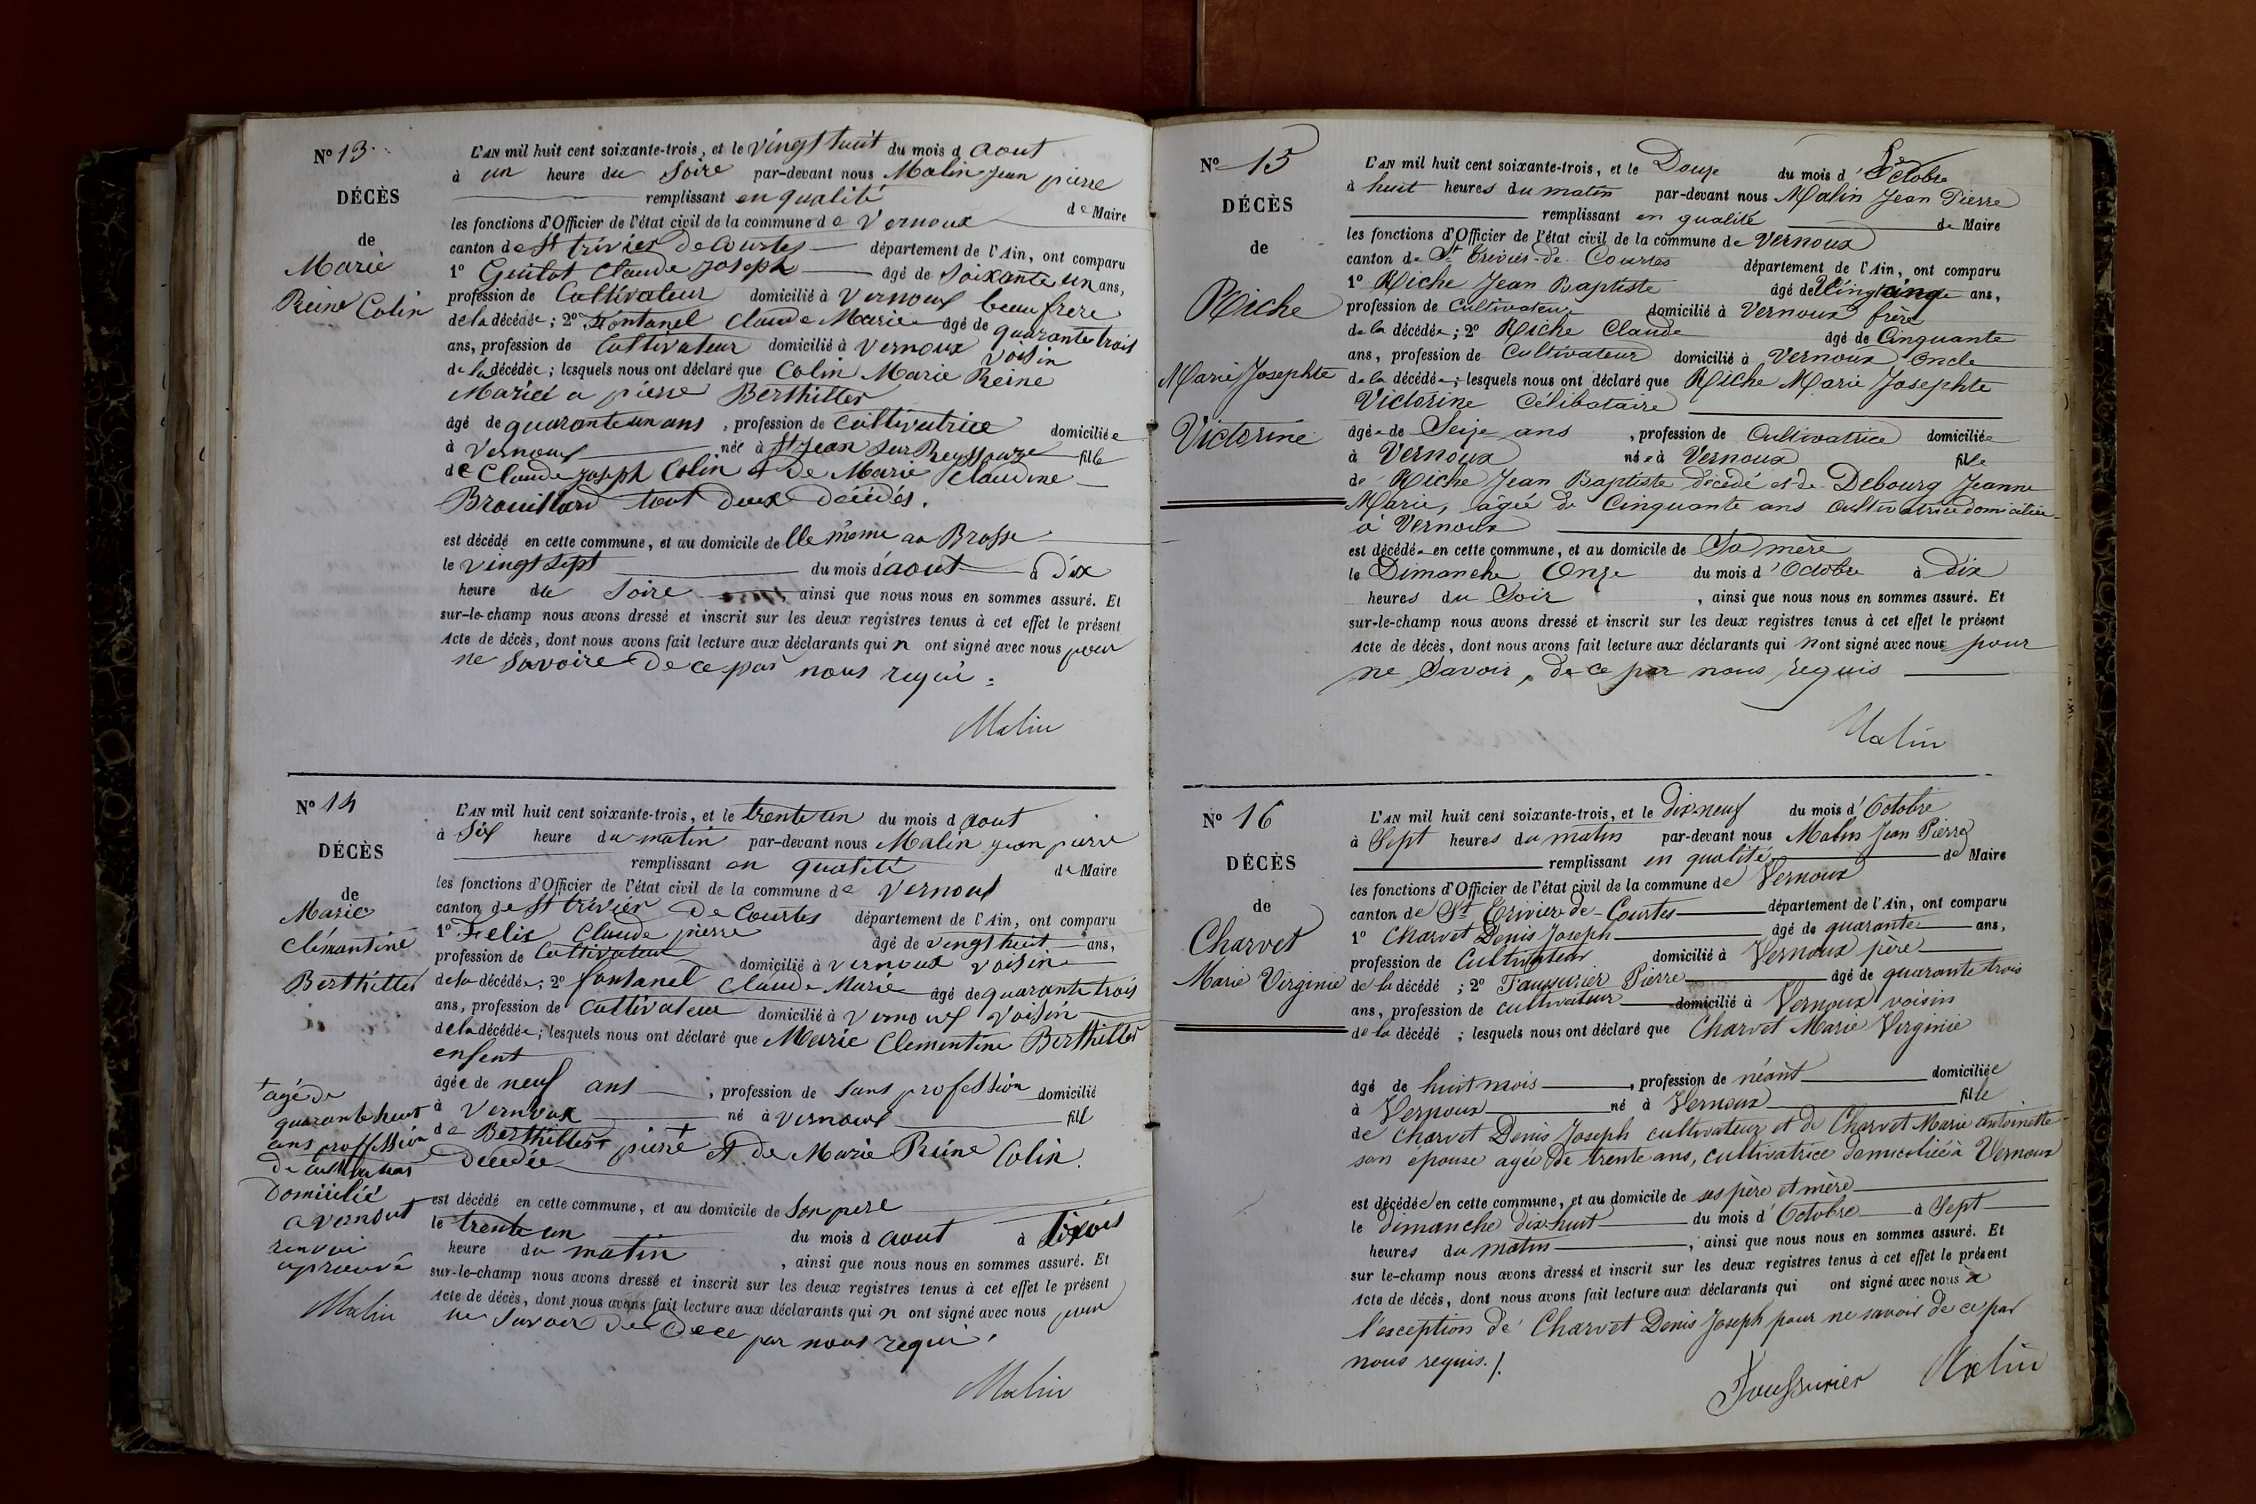 Nº 13
DÉCÈS
de
Marie
Reine Colin
L'AN mil huit cent soixante-trois, et le vingt huit du mois d aout
à un heure du soire par-devant nous Malin Jean pierre
remplissant en qualité de Maire
les fonctions d'Officier de l'état civil de la commune de Vernoux
canton de St trivier De Courtes département de l'Ain, ont comparu
1º Guilot Claude Joseph âgé de Soixante un ans,
profession de Cultivateur domicilié à Vernoux beau frere
de la décédée; 2º Fontanel Claude Marie âgé de quarante trois
ans, profession de Cultivateur domicilié à Vernoux voisin
de la décédée; lesquels nous ont déclaré que Colin Marie Reine
Mariéé a pierre Berthillet
âgé de quarante un ans, profession de Cultivatrice domiciliée
à Vernoux née à St Jean Sur Reyssouze fille
de Claude Joseph Colin et De Marie Claudine
Brouillard tout deux décédés.
est décédé en cette commune, et au domicile de elle même au Brosse
le vingt sept du mois d'aout à dix
heure du soire, ainsi que nous nous en sommes assuré. Et
sur-le-champ nous avons dressé et inscrit sur les deux registres tenus à cet effet le présent
Acte de décès, dont nous avons fait lecture aux déclarants qui n ont signé avec nous pour
ne savoire De ce par nous requi.
Malin
Nº 14
DÉCÈS
de
Marie
Clémantine
Berthillet
L'AN mil huit cent soixante-trois, et le trente un du mois d aout
à Six heure du matin par-devant nous Malin jean pierre
remplissant en qualité de Maire
les fonctions d'Officier de l'état civil de la commune de Vernoux
canton de St trivier De Courtes département de l'Ain, ont comparu
1º Felix Claude pierre âgé de vingt huit ans,
profession de Cultivateur domicilié à Vernoux voisin
de la décédée; 2º fontanel Claude Marie âgé de quarante trois
ans, profession de Cultivateur domicilié à Vernoux voisin
de la décédée; lesquels nous ont déclaré que Marie Clementine Berthillet
enfent
âgée de neuf ans, profession de sans profession domicilié
à Vernoux né à Vernoux fille
de Berthillet pierre + et de Marie Reine Colin.
Décédée
+ agé de
quarante huit
ans proffession
De Cultivateur
Domicilié
a vernoux
renvoi
aprouvé
Malin
est décédé en cette commune, et au domicile de son pere
le trente un du mois d aout à
heure du matin, ainsi que nous nous en sommes assuré. Et
sur-le-champ nous avons dressé et inscrit sur les deux registres tenus à cet effet le présent
Acte de décès, dont nous avons fait lecture aux déclarants qui n ont signé avec nous pour
ne savoir De ce par nous requi.
Malin
Nº 15
DÉCÈS
de
Riche
Marie Josephte
Victorine
L'AN mil huit cent soixante-trois, et le Douze du mois d'Octobre
à huit heures du matin par-devant nous Malin Jean Pierre
remplissant en qualité de Maire
les fonctions d'Officier de l'état civil de la commune de Vernoux
canton de St Trivier-de-Courtes département de l'Ain, ont comparu
1º Riche Jean Baptiste âgé de Vingt cinq ans,
profession de Cultivateur domicilié à Vernoux frère
de la décédée; 2º Riche Claude âgé de Cinquante
ans, profession de Cultivateur domicilié à Vernoux Oncle
de la décédée; lesquels nous ont déclaré que Riche Marie Josephte
Victorine Célibataire
âgée de Seize ans, profession de Cultivatrice domiciliée
à Vernoux née à Vernoux fille
de Riche Jean Baptiste décédé et de Debourg Jeanne
Marie, agée de Cinquante ans cultivatrice domiciliée
à Vernoux
est décédée en cette commune, et au domicile de Sa mère
le Dimanche Onze du mois d'Octobre à Dix
heures du Soir, ainsi que nous nous en sommes assuré. Et
sur-le-champ nous avons dressé et inscrit sur les deux registres tenus à cet effet le présent
Acte de décès, dont nous avons fait lecture aux déclarants qui n ont signé avec nous pour
ne Savoir, de ce par nous requis
Malin
Nº 16
DÉCÈS
de
Charvet
Marie Virginie
L'AN mil huit cent soixante-trois, et le dix neuf du mois d'Octobre
à Sept heures du matin par-devant nous Malin Jean Pierre
remplissant en qualité de Maire
les fonctions d'Officier de l'état civil de la commune de Vernoux
canton de St Trivier-de-Courtes département de l'Ain, ont comparu
1º Charvet Denis Joseph âgé de quarante ans,
profession de Cultivateur domicilié à Vernoux père
de la décédé; 2º Faussurier Pierre âgé de quarante trois
ans, profession de cultivateur domicilié à Vernoux voisin
de la décédé; lesquels nous ont déclaré que Charvet Marie Virginie
âgé de huit mois, profession de néant domiciliée
à Vernoux né à Vernoux fille
de Charvet Denis Joseph cultivateur et de Charvet Marie antoinette
son epouse agée de trente ans, cultivatrice domiciliée à Vernoux
est décédée en cette commune, et au domicile de ses père et mère
le dimanche dix huit du mois d'Octobre à Sept
heures du matin, ainsi que nous nous en sommes assuré. Et
sur le-champ nous avons dressé et inscrit sur les deux registres tenus à cet effet le présent
Acte de décès, dont nous avons fait lecture aux déclarants qui ont signé avec nous à
l'exception de Charvet Denis Joseph pour ne savoir de ce par
nous requis./.
Faussurier Malin